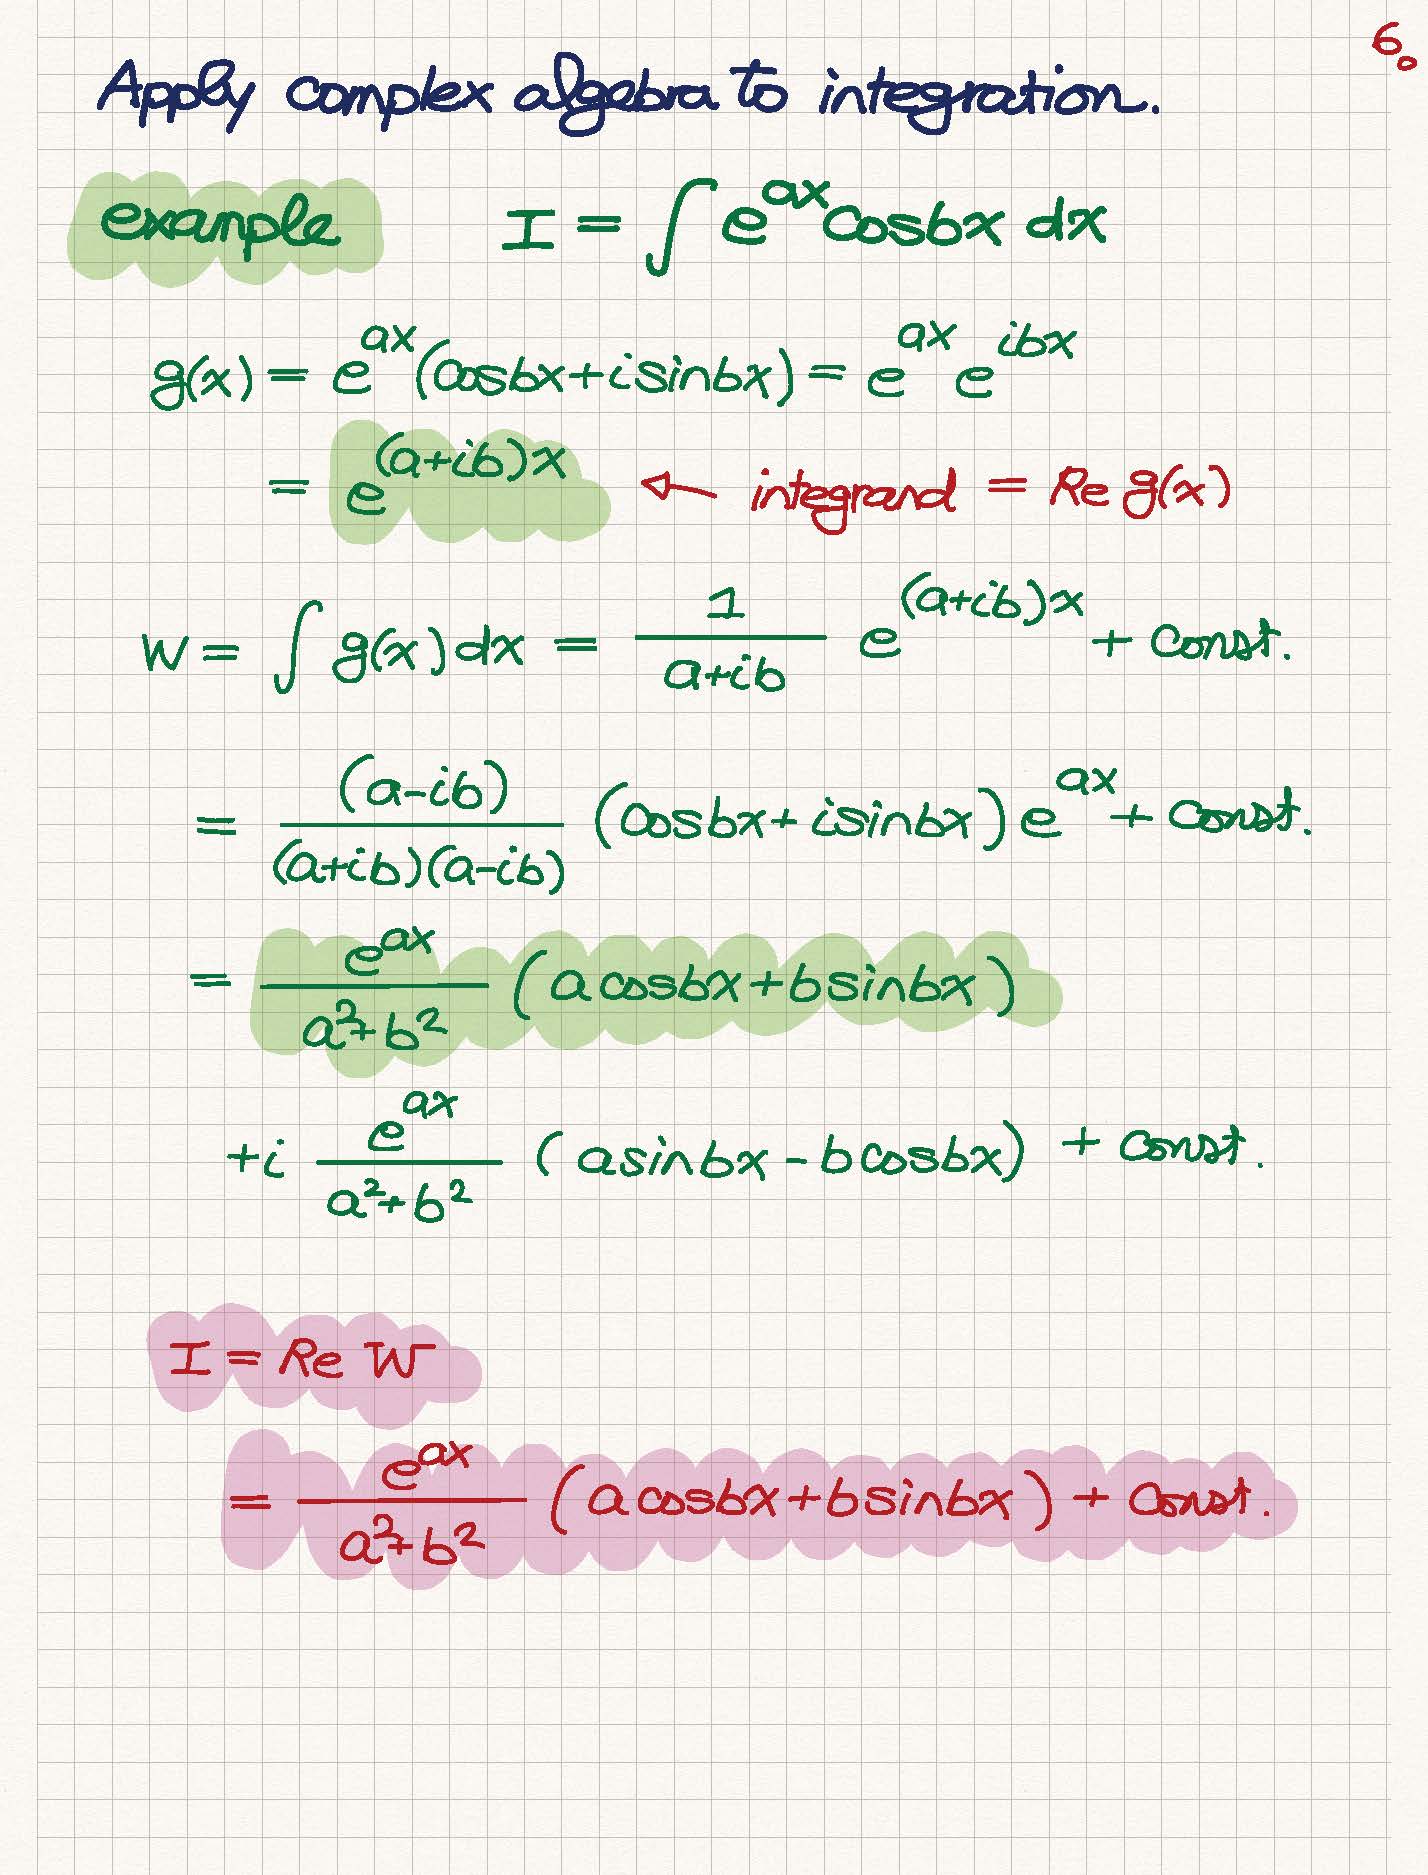 6.
Apply complex algebra to integration.
example I = ∫ e^{ax} cosbx dx
g(x) = e^{ax}(cosbx + i sinbx) = e^{ax} e^{ibx}
= e^{(a+ib)x} ← integrand = Re g(x)
W = ∫ g(x) dx = \frac{1}{a+ib} e^{(a+ib)x} + const.
= \frac{(a-ib)}{(a+ib)(a-ib)} (cosbx + isinbx) e^{ax} + const.
= \frac{e^{ax}}{a^2+b^2} (a cosbx + b sinbx)
+ i \frac{e^{ax}}{a^2+b^2} (a sinbx - b cosbx) + const.
I = Re W
= \frac{e^{ax}}{a^2+b^2} (a cosbx + b sinbx) + const.